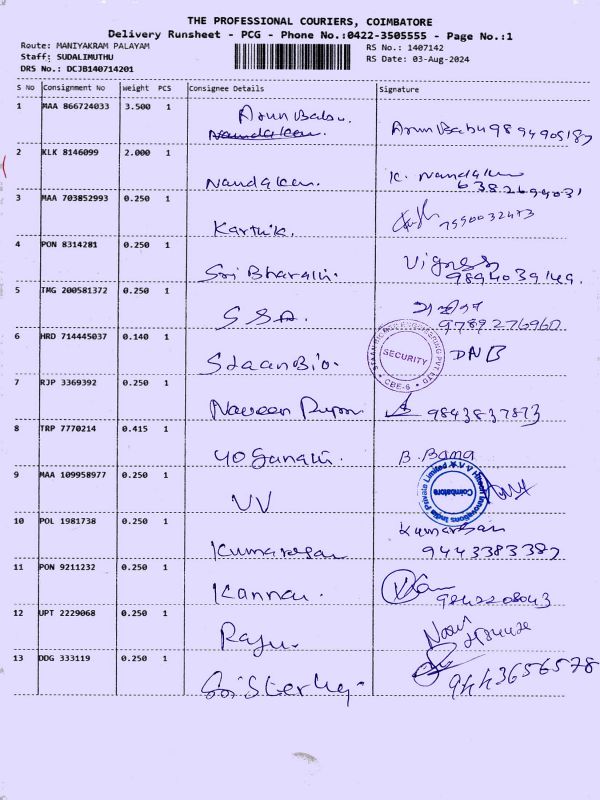 THE PROFESSIONAL COURIERS, COIMBATORE
Delivery Runsheet - PCG - Phone No.:0422-3505555 - Page No.:1
Route: MANIYAKRAM PALAYAM RS No.: 1407142
Staff: SUDALIMUTHU RS Date: 03-Aug-2024
DRS No.: DCJB140714201
S No Consignment No Weight PCS Consignee Details Signature
1 MAA 866724033 3.500 1 Arun Babu. Arun Babu 9894905187
Nandakan.
2 KLK 8146099 2.000 1 Nandakan. K. Nandakum
6382699031
3 MAA 703852993 0.250 1 Karthik. 7990032473
4 PON 8314281 0.250 1 Sri Bharathi. Vignesh
9894039149.
5 TMG 200581372 0.250 1 SSA. 9789276960
6 HRD 714445037 0.140 1 StaanBio. SECURITY CBE-6 DNB
7 RJP 3369392 0.250 1 Naveen 9843837873
8 TRP 7770214 0.415 1 Yoganathi. B. Bama
9 MAA 109958977 0.250 1 VV V V Hitech Innovations India Private Limited Coimbatore
10 POL 1981738 0.250 1 Kumaresan Kumaresan
9443383387
11 PON 9211232 0.250 1 Kannan. 9842208043
12 UPT 2229068 0.250 1 Raju.
13 DDG 333119 0.250 1 9443656578